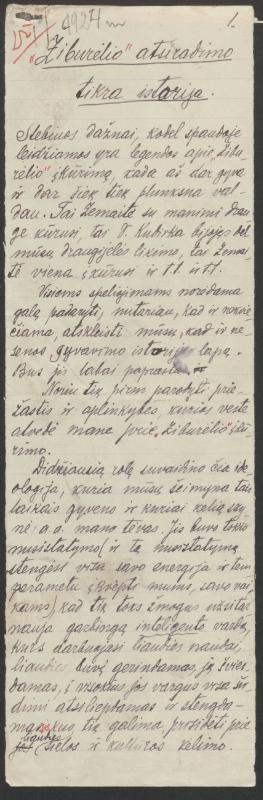 1924 m
1.
„Žiburėlio" atsiradimo
tikra istorija.
Stebiuos dažnai, kodel spaudoje
leidžiamos yra legendos apie „Žibu-
rėlio" įkūrimą, kada aš dar gyva
ir dar šiek tiek plunksna val-
dau. Tai Žemaitė su manimi drau
ge kūrusi, tai V. Kudirka bijojęs dėl
mūsų draugijėlės likimo, tai Žemai-
tė viena įkūrusi ir t.t. ir t.t.
Visiems spėliojimams norėdama
galą padaryti, nutariau, kad ir nenorė
čiama, atskleisti mūsų, kad ir ne
senos gyvavimo istorijos lapą.
Bus jis labai paprastas.
Noriu tik pirm parodyti prie-
žastis ir aplinkybes, kurios vedė
atvedė mane prie „Žiburėlio" įkū-
rimo.
Didžiausią rolę suvaidino čia ide-
ologija, kuria mūsų šeimyna tais
laikais gyveno ir kuriai kelią sky-
nė a.a. mano tėvas. Jis buvo tokio
nusistatymo (ir tą nusistatymą
stengėsi visa savo energija ir tem
peramentu įkvėpti mums, savo vai
kams), kad tik toks žmogus užsitar
nauja garbingą inteligento vardą,
kurs darbuojasi liaudies naudai,
liaudies būvį gerindamas, ją švies-
damas, į visokius jos vargus visa šir
dimi atsiliepdamas ir stengda-
masis kuo tik galima prisidėti prie
liaudies sielos ir kultūros kėlimo.